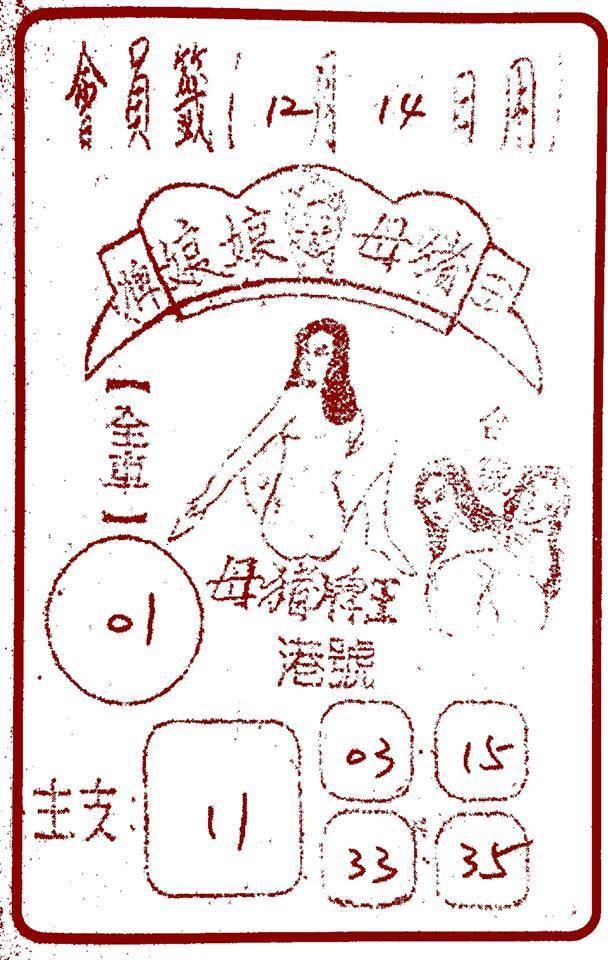 會員籤 12月 14日
母豬
【全車】
01
母豬牌王
港號
主支: 11
03 · 15
33 · 35